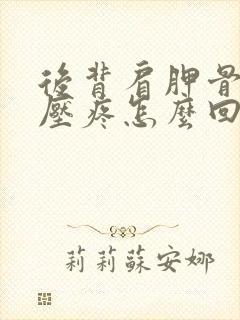 後背肩胛骨
壓疼怎麼回
莉莉蘇安娜